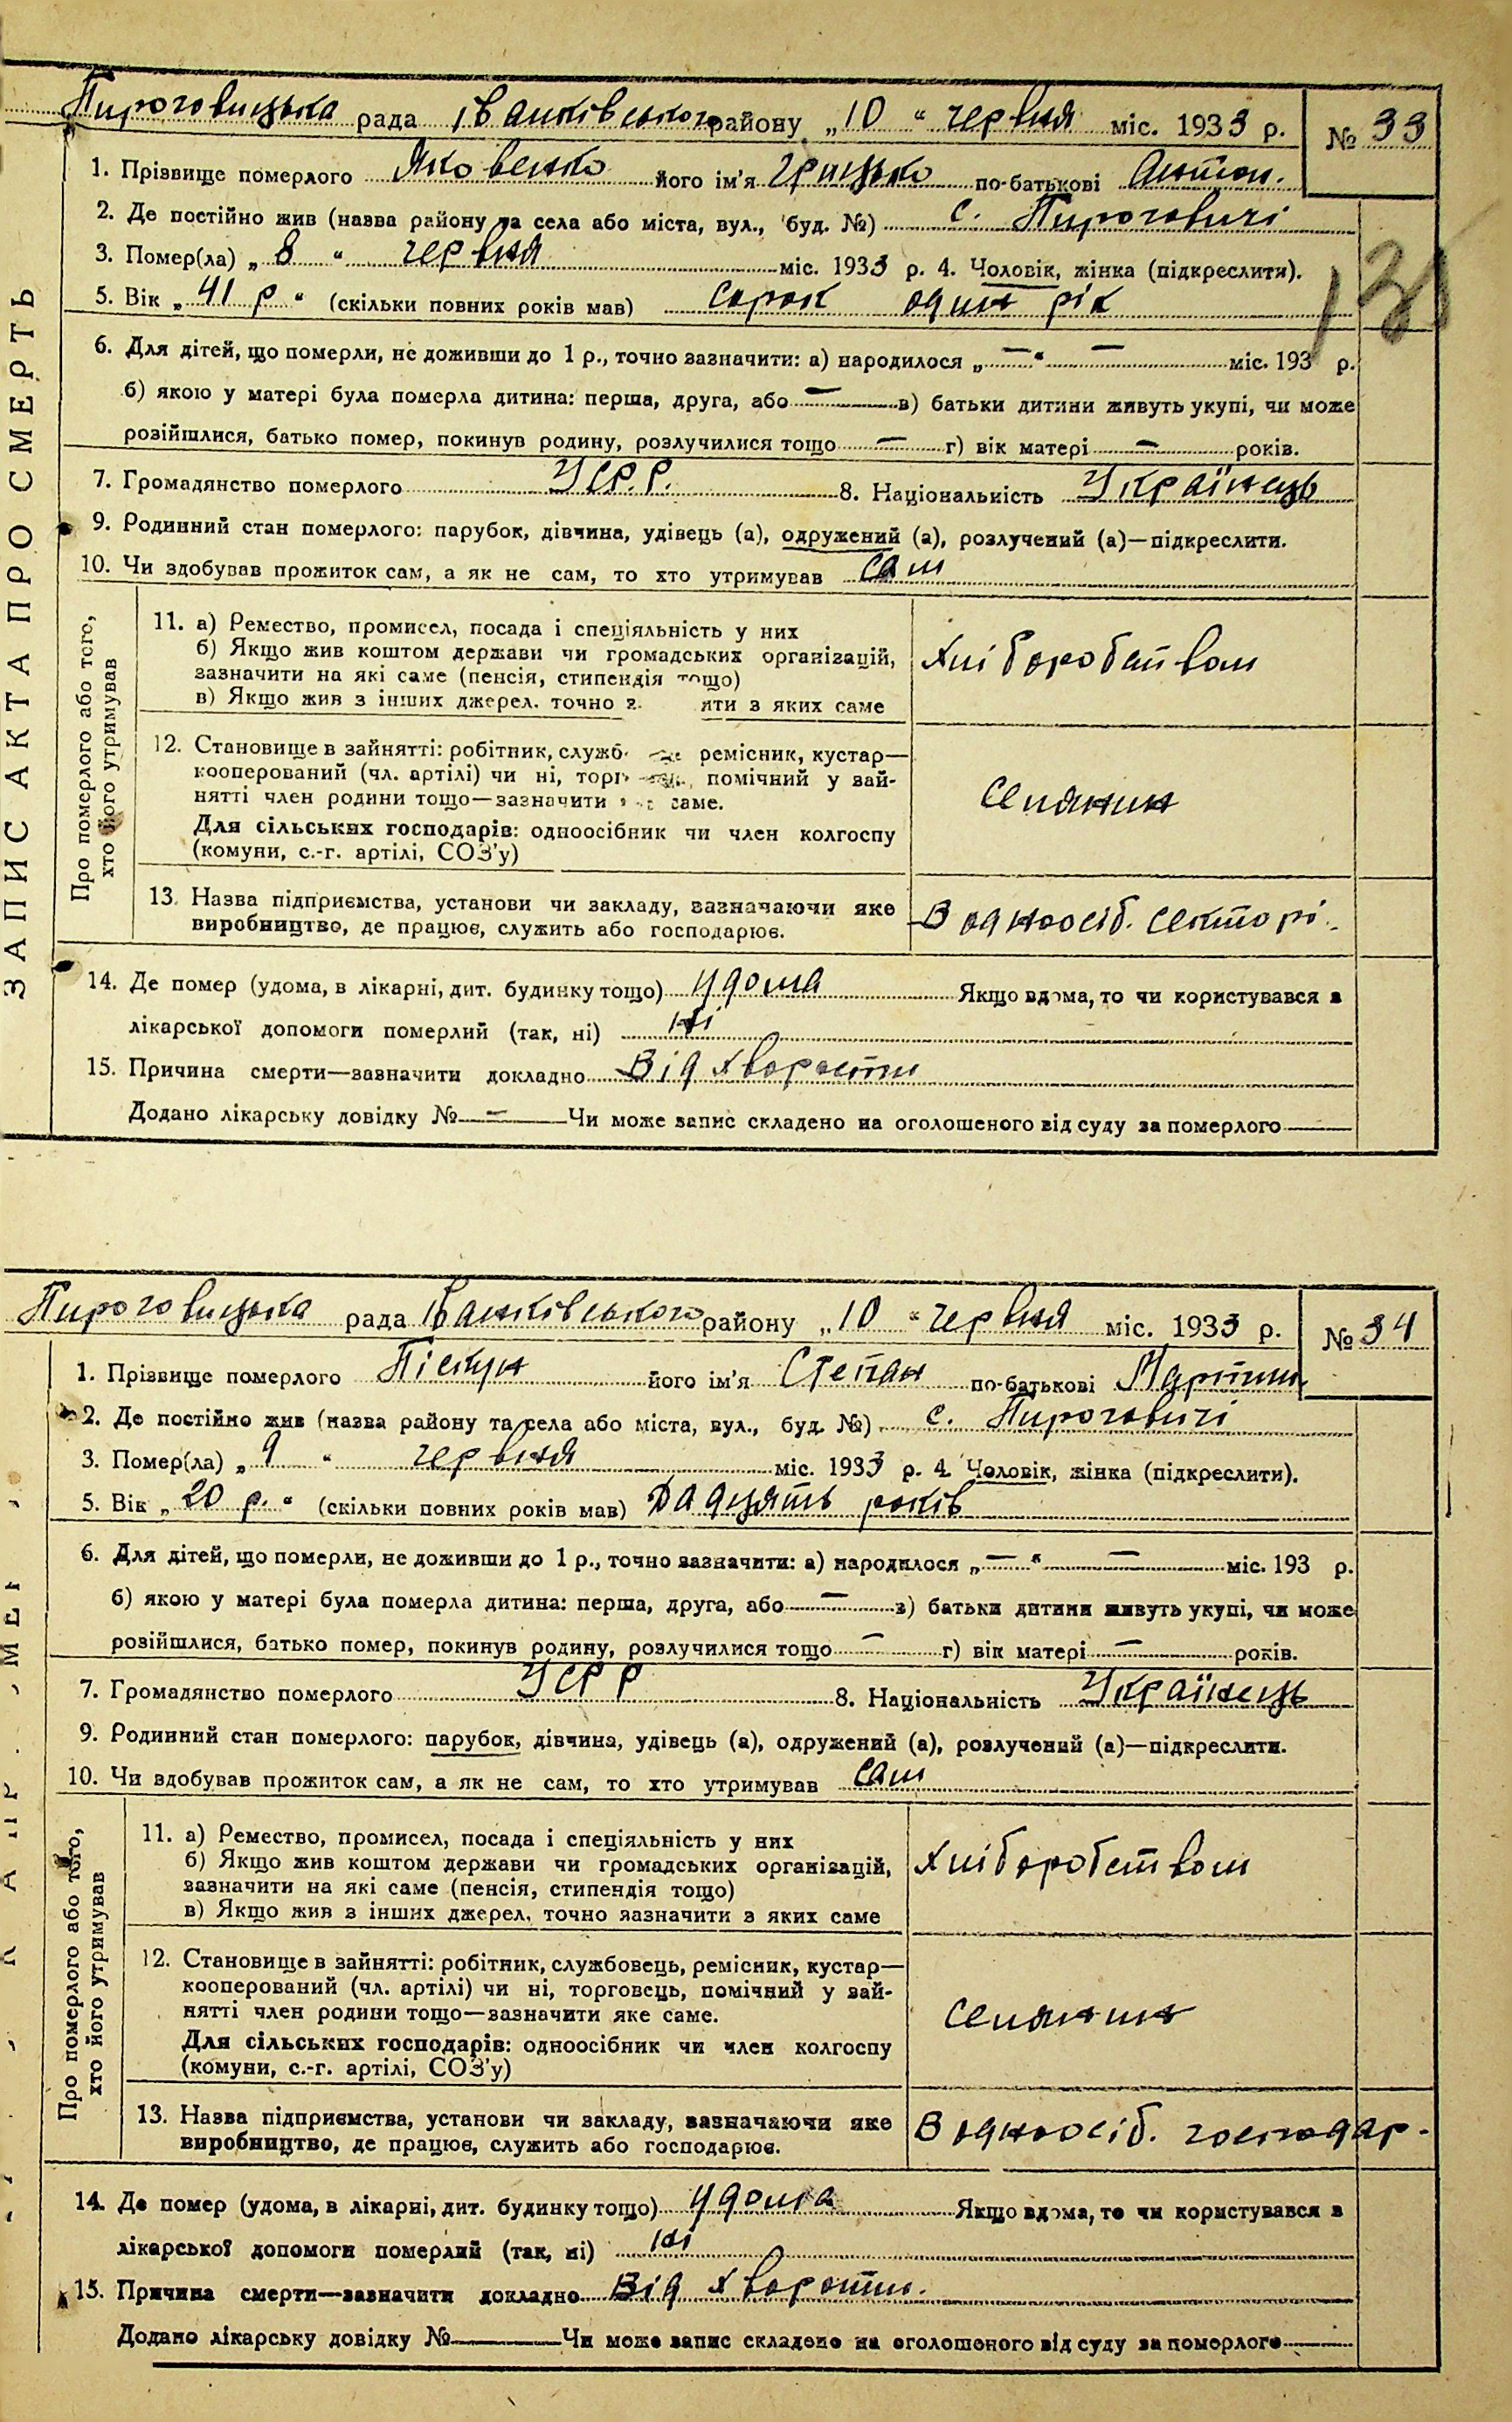 Пироговицька рада Іванківського району „10 “ червня міс. 1933 р. № 33
1. Прізвище померлого Яковенко його ім’я Грицько по-батькові Антон.
2. Де постійно жив (назва району та села або міста, вул., буд. №) с. Пироговичі
3. Помер(ла) „ 8 “ червня міс. 1933 р. 4. Чоловік, жінка (підкреслити).
5. Вік „ 41 р “ (скільки повних років мав) сорок один рік
131
6. Для дітей, що померли, не доживши до 1 р., точно зазначити: а) народилося „ — “ — міс. 193 р.
б) якою у матері була померла дитина: перша, друга, або — в) батьки дитини живуть укупі, чи може
розійшлися, батько помер, покинув родину, розлучилися тощо — г) вік матері — років.
7. Громадянство померлого УСР.Р. 8. Національність Українець
9. Родинний стан померлого: парубок, дівчина, удівець (а), одружений (а), розлучений (а)—підкреслити.
10. Чи здобував прожиток сам, а як не сам, то хто утримував сам
ЗАПИС АКТА ПРО СМЕРТЬ
Про померлого або того,
хто його утримував
11. а) Ремество, промисел, посада і спеціяльність у них
б) Якщо жив коштом держави чи громадських організацій,
зазначити на які саме (пенсія, стипендія тощо)
в) Якщо жив з інших джерел. точно з яти з яких саме
Хліборобством
12. Становище в зайнятті: робітник, служб ремісник, кустар—
кооперований (чл. артілі) чи ні, торг помічний у зай-
нятті член родини тощо—зазначити саме.
Для сільських господарів: одноосібник чи член колгоспу
(комуни, с.-г. артілі, СОЗ’у)
селянин
13. Назва підприємства, установи чи закладу, зазначаючи яке
виробництво, де працює, служить або господарює.
В одноосіб. секторі.
14. Де помер (удома, в лікарні, дит. будинку тощо) удома Якщо вдома, то чи користувався з
лікарської допомоги померлий (так, ні) ні
15. Причина смерти—зазначити докладно Від хворости
Додано лікарську довідку № — Чи може запис складено на оголошеного від суду за померлого
Пироговицька рада Іванківського району „10 “ червня міс. 1933 р. № 34
1. Прізвище померлого Піскун його ім’я Степан по-батькові Мартин
2. Де постійно жив (назва району та села або міста, вул., буд. №) с. Пироговичі
3. Помер(ла) „ 9 “ червня міс. 1933 р. 4. Чоловік, жінка (підкреслити).
5. Вік „ 20 р. “ (скільки повних років мав) Дадцять років
6. Для дітей, що померли, не доживши до 1 р., точно зазначити: а) народилося „ — “ — міс. 193 р.
б) якою у матері була померла дитина: перша, друга, або — в) батьки дитини живуть укупі, чи може
розійшлися, батько помер, покинув родину, розлучилися тощо — г) вік матері — років.
7. Громадянство померлого УСРР 8. Національність Українець
9. Родинний стан померлого: парубок, дівчина, удівець (а), одружений (а), розлучений (а)—підкреслити.
10. Чи здобував прожиток сам, а як не сам, то хто утримував сам
Про померлого або того,
хто його утримував
11. а) Ремество, промисел, посада і спеціяльність у них
б) Якщо жив коштом держави чи громадських організацій,
зазначити на які саме (пенсія, стипендія тощо)
в) Якщо жив з інших джерел, точно зазначити з яких саме
Хліборобством
12. Становище в зайнятті: робітник, службовець, ремісник, кустар—
кооперований (чл. артілі) чи ні, торговець, помічний у зай-
нятті член родини тощо—зазначити яке саме.
Для сільських господарів: одноосібник чи член колгоспу
(комуни, с.-г. артілі, СОЗ’у)
селянин
13. Назва підприємства, установи чи закладу, зазначаючи яке
виробництво, де працює, служить або господарює.
В одноосіб. господар.
14. Де помер (удома, в лікарні, дит. будинку тощо) удома Якщо вдома, то чи користувався з
лікарської допомоги померлий (так, ні) ні
15. Причина смерти—зазначити докладно Від хворости.
Додано лікарську довідку № Чи може запис складено на оголошеного від суду за померлого